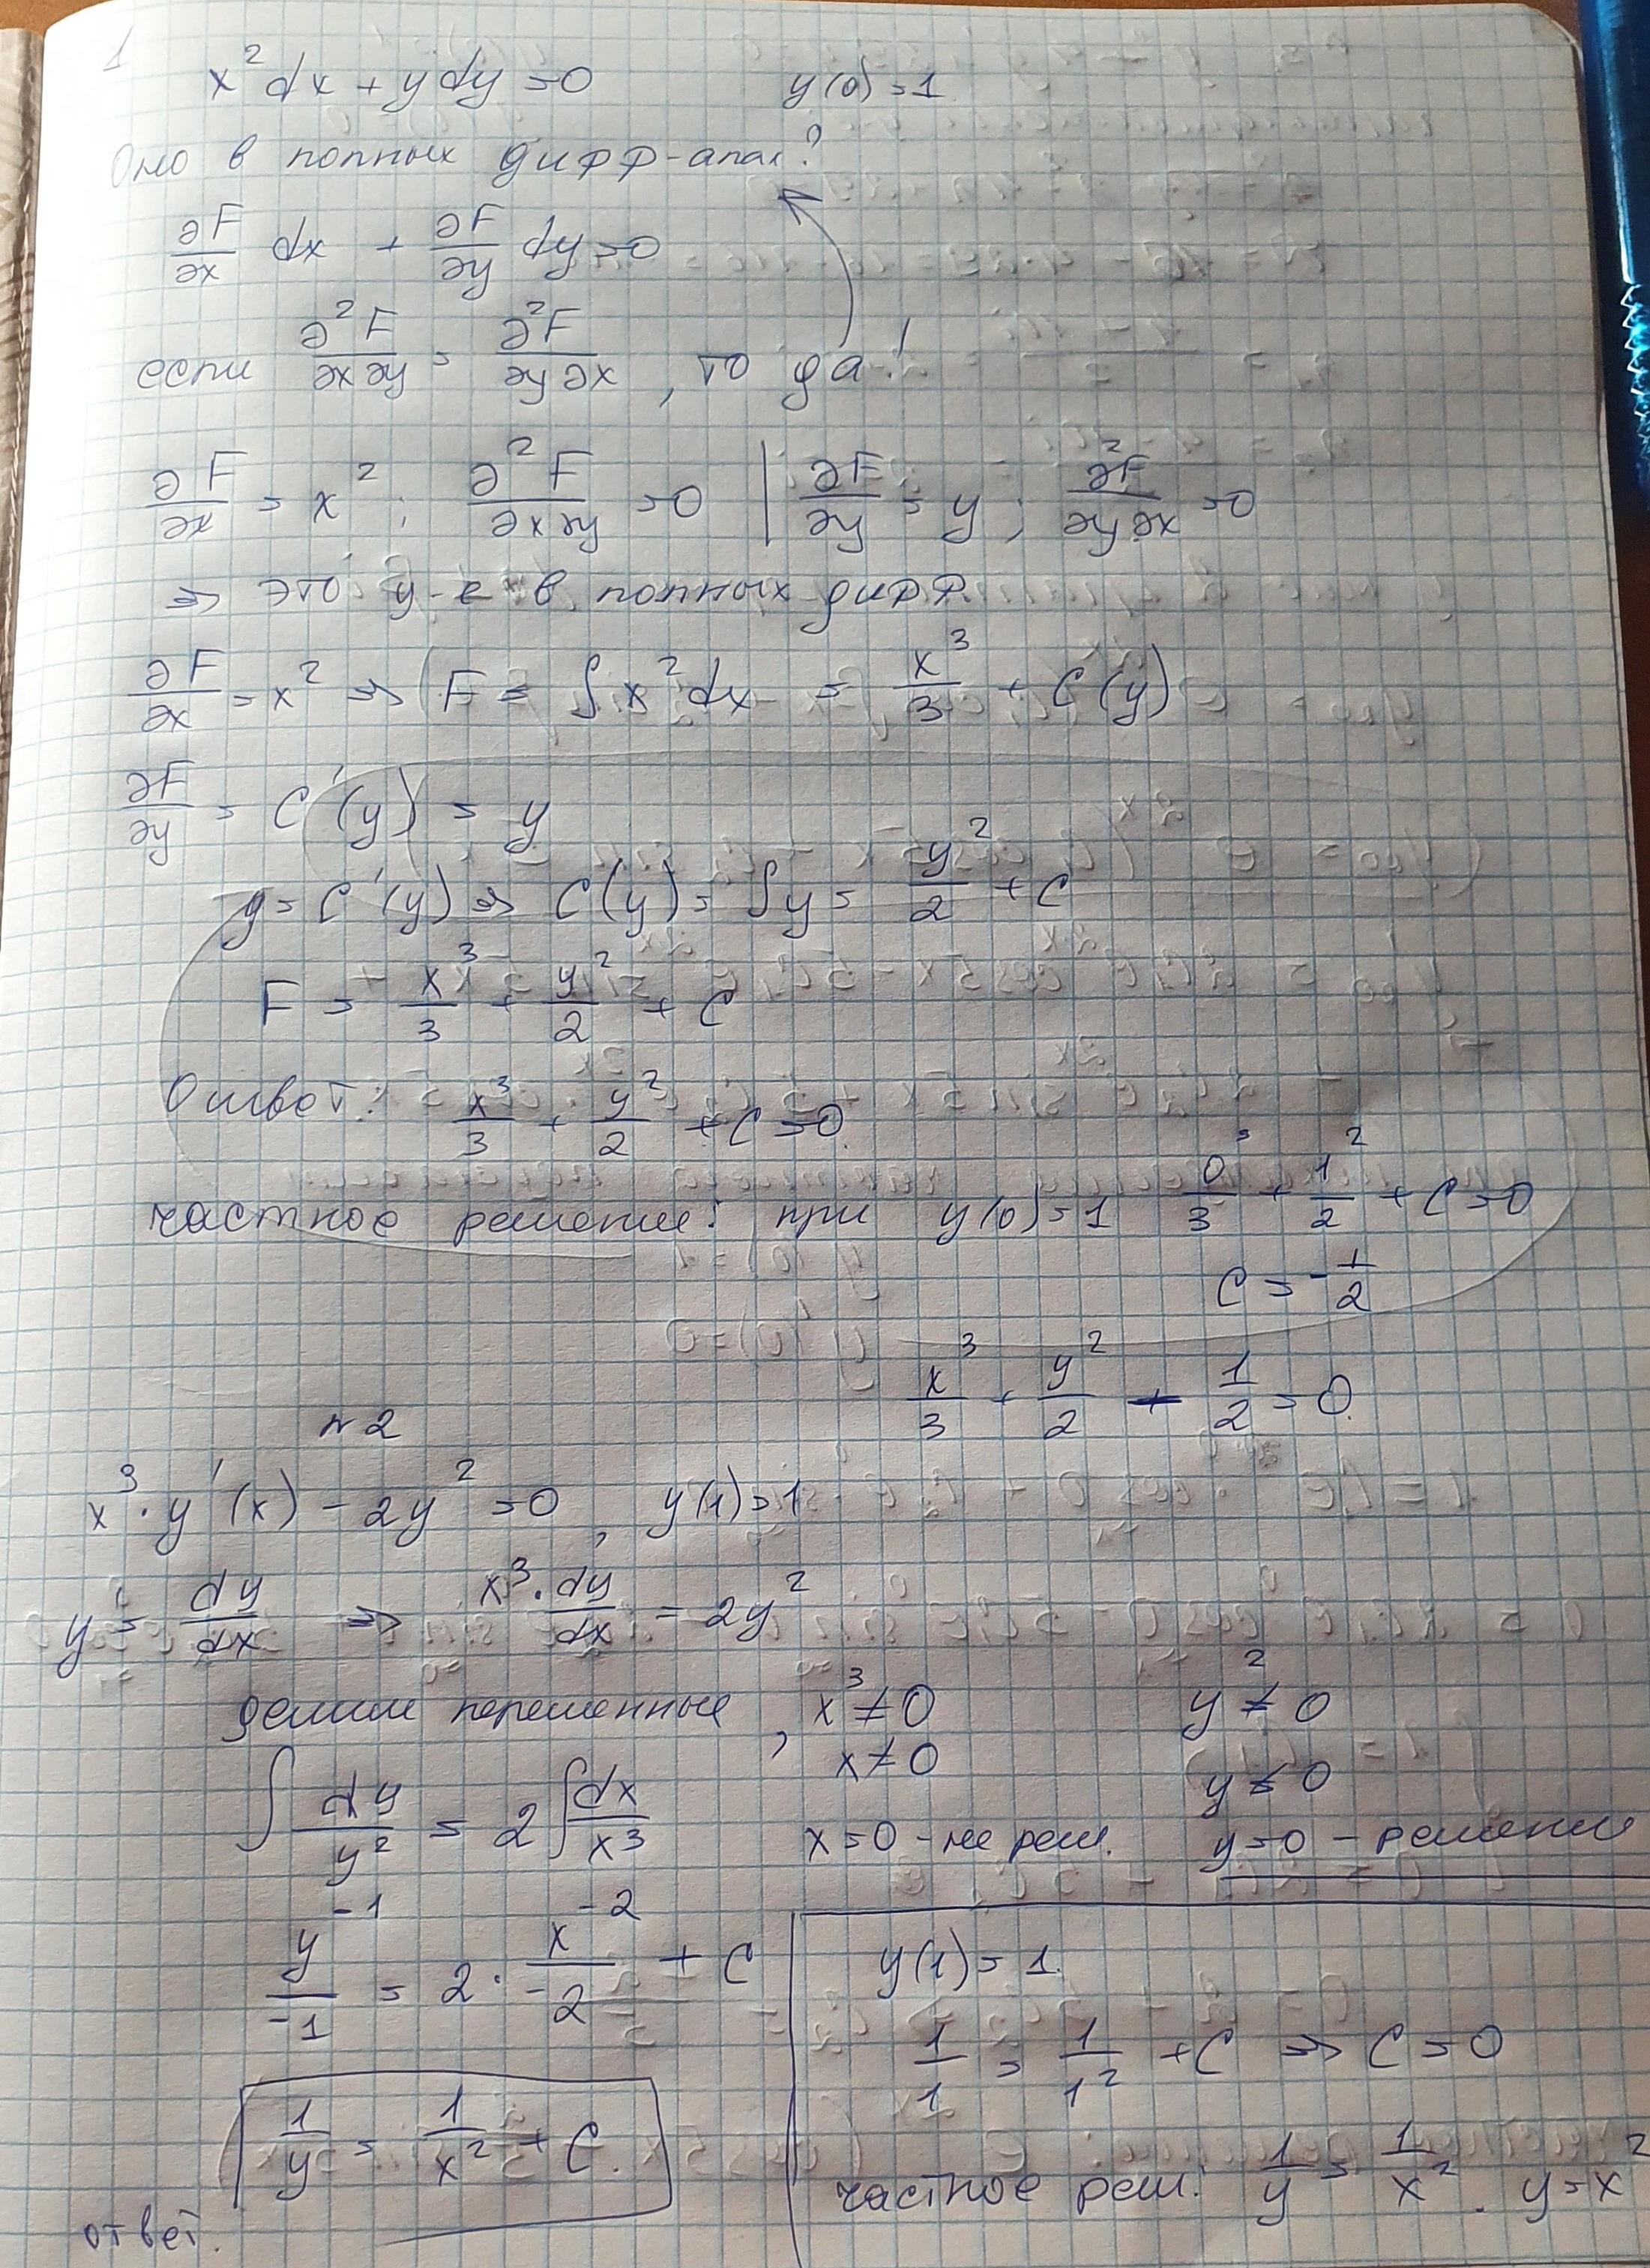 1
x² dx + y dy = 0 y(0) = 1
Оно в полных дифф-алах?
∂F/∂x dx + ∂F/∂y dy = 0
если ∂²F/∂x∂y = ∂²F/∂y∂x , то да!
∂F/∂x = x² ; ∂²F/∂x∂y = 0 | ∂F/∂y = y ; ∂²F/∂y∂x = 0
⇒ это у-е в полных дифф.
∂F/∂x = x² ⇒ F = ∫ x² dx = x³/3 + C(y)
∂F/∂y = C'(y) = y
y = C'(y) ⇒ C(y) = ∫y = y²/2 + C
F = x³/3 + y²/2 + C
Ответ: x³/3 + y²/2 + C = 0.
частное решение: при y(0) = 1 0³/3 + 1²/2 + C = 0
C = -1/2
x³/3 + y²/2 - 1/2 = 0.
n 2
x³ · y'(x) - 2y² = 0 , y(1) = 1
y' = dy/dx ⇒ x³ · dy/dx = 2y²
делим переменные , x³ ≠ 0 y² ≠ 0
x ≠ 0 y ≠ 0
∫ dy/y² = 2 ∫ dx/x³ x = 0 - не реш. y = 0 - решение
y⁻¹/-1 = 2 · x⁻²/-2 + C
y(1) = 1.
1/1 = 1/1² + C ⇒ C = 0
1/y = 1/x² + C.
частное реш: 1/y = 1/x² . y = x²
ответ.